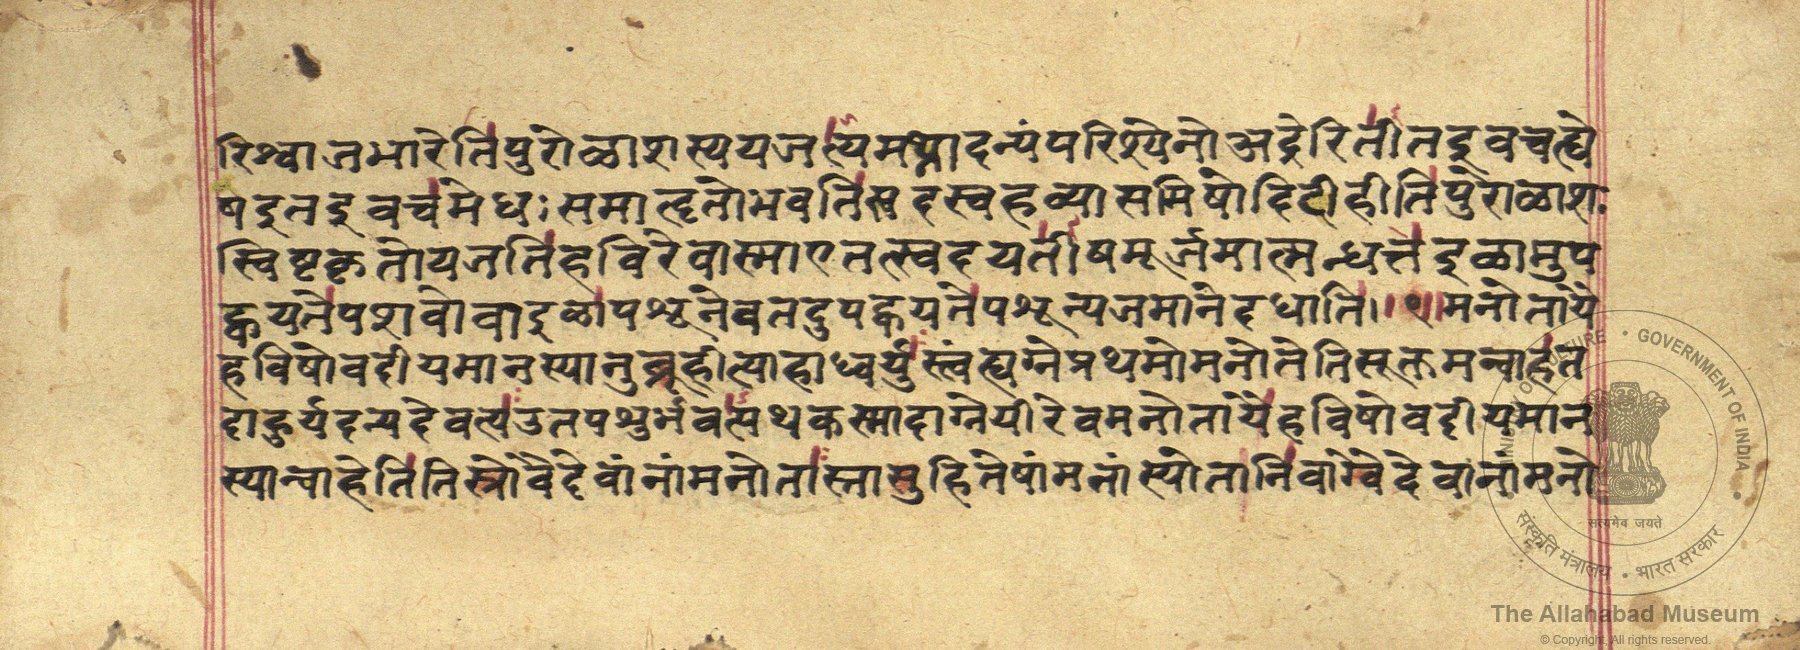 रिश्वाजभारेतिपुरोळाशस्ययजत्यमथ्नादन्यंपरिश्येनोअद्रेरितीतइवचह्ये
षइतइवचमेधःसमाहृतोभवतिस्वदस्वहव्यासमिषोदिदीहीतिपुरोळाश
स्विष्टकृतोयजतिहविरेवास्माएतत्स्वदयतीषमूर्जमात्मन्धत्तइळामुप
ह्वयतेपशवोवाइळापशूनेवतदुपह्वयतेपशून्यजमानेदधाति॥१॥मनोतायै
हविषोवदीयमानस्यानुब्रूहीत्याहाध्वर्युस्त्वंह्यग्नेप्रथमोमनोतेतिसूक्तमन्वाहत
दाहुर्यदन्यदेवत्यउतपशुर्भवत्यथकस्मादाग्नेयीरेवमनोतायैहविषोवदीयमान
स्यान्वाहेतितिस्रोवैदेवानांमनोतास्तासुहितेषांमनांस्योतानिवाग्वैदेवानांमनो
MINISTRY OF CULTURE • GOVERNMENT OF INDIA •
सत्यमेव जयते
संस्कृति मंत्रालय • भारत सरकार
The Allahabad Museum
© Copyright, All rights reserved.